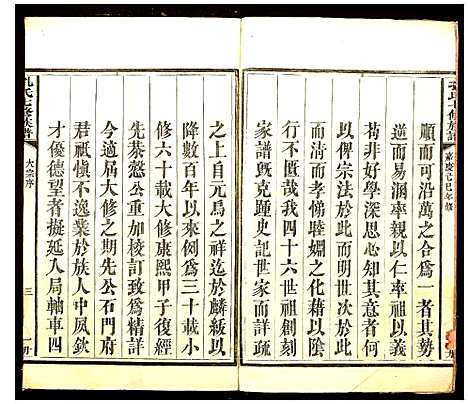 孔氏七修族譜
嘉慶己巳年修
順而可沿萬之合爲一者其勢
逆而易涸率親以仁率祖以義
苟非好學深思心知其意者何
以俾宗法於此而明世次於此
而清而孝悌睦婣之化藉以隂
行不匱哉我四十六世祖刻
家譜既克踵史記世家而詳疏
之上自元鳥之祥迄於麟紱以
降數百年以來例爲三十載小
修六十載大修康熙甲子復經
先恭慤公重加梭訂致爲精詳
今適屆大修之期先公石門府
君祗愼不逸業於族人中夙欽
才優德望者擬延入局輔車四
孔氏七修族譜
大宗序
三